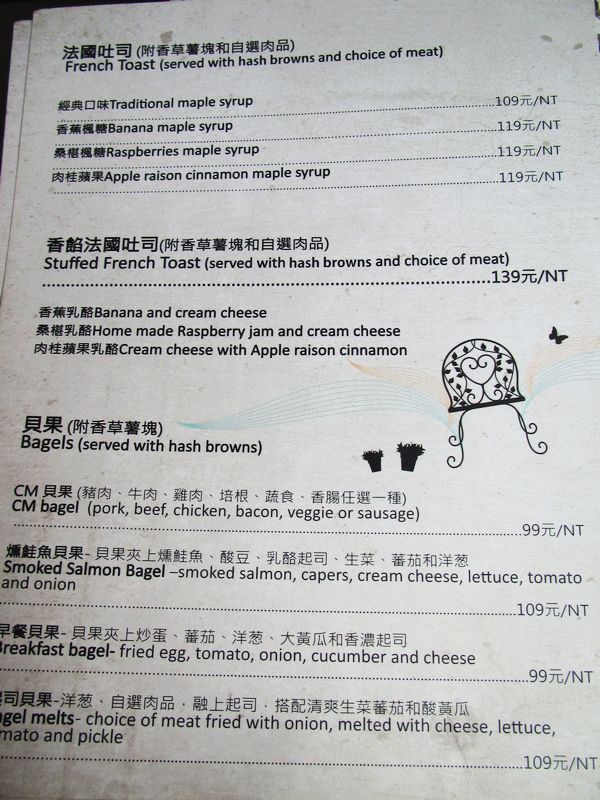 法國吐司 (附香草薯塊和自選肉品)
French Toast (served with hash browns and choice of meat)
經典口味Traditional maple syrup 109元/NT
香蕉楓糖Banana maple syrup 119元/NT
桑椹楓糖Raspberries maple syrup 119元/NT
肉桂蘋果Apple raison cinnamon maple syrup 119元/NT
香餡法國吐司(附香草薯塊和自選肉品)
Stuffed French Toast (served with hash browns and choice of meat)
139元/NT
香蕉乳酪Banana and cream cheese
桑椹乳酪Home made Raspberry jam and cream cheese
肉桂蘋果乳酪Cream cheese with Apple raison cinnamon
貝果 (附香草薯塊)
Bagels (served with hash browns)
CM 貝果 (豬肉、牛肉、雞肉、培根、蔬食、香腸任選一種)
CM bagel (pork, beef, chicken, bacon, veggie or sausage)
99元/NT
燻鮭魚貝果- 貝果夾上燻鮭魚、酸豆、乳酪起司、生菜、蕃茄和洋葱
Smoked Salmon Bagel –smoked salmon, capers, cream cheese, lettuce, tomato
and onion
109元/NT
早餐貝果- 貝果夾上炒蛋、蕃茄、洋葱、大黃瓜和香濃起司
Breakfast bagel- fried egg, tomato, onion, cucumber and cheese
99元/NT
司貝果-洋葱、自選肉品，融上起司，搭配清爽生菜蕃茄和酸黃瓜
agel melts- choice of meat fried with onion, melted with cheese, lettuce,
mato and pickle
109元/NT